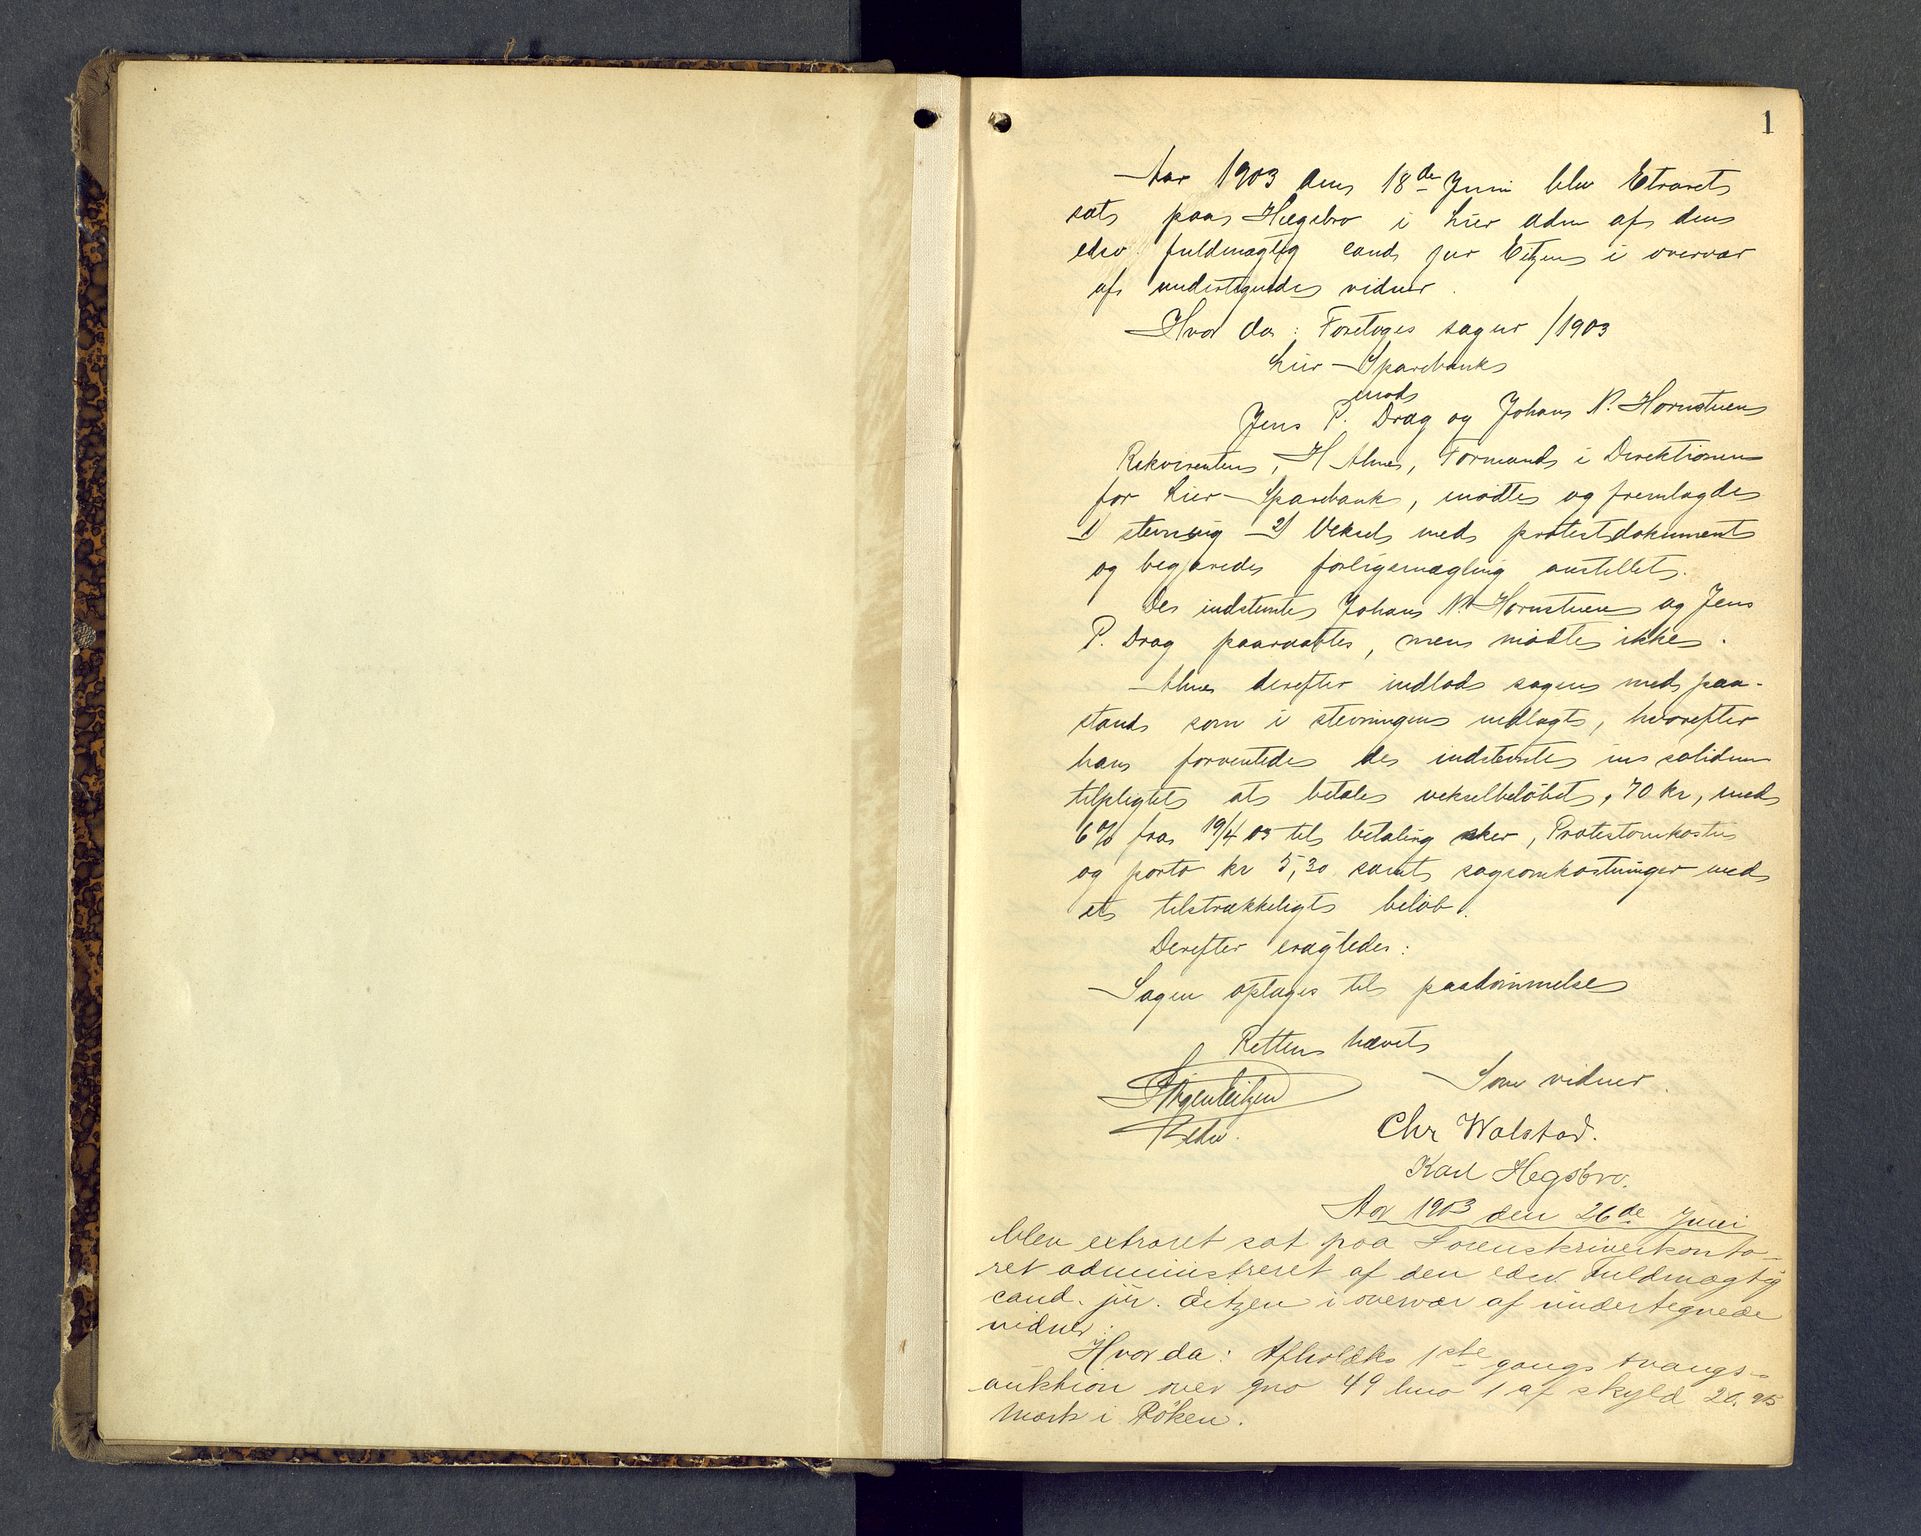 1
Aar 1903 den 18de Juni blev Etraret
sat paa Hægsbro i Lier adm af den
edsv. fuldmægtig cand jur Eitzen i overvær
af undertegnede vidner.
Hvor da: Foretoges sagnr /1903
Lier Sparebank
mod
Jens P. Drag og Johan N. Hornstuen
Rekvirenten, H Alnes, Formand i Direktionen
for Lier Sparebank, mødte og fremlagde
1) stevning 2) Veksel med protestdokument
og begjærede forligsmægling anstillet.
De indstevnte Johan N. Hornstuen og Jens
P. Drag paaraabtes, men mødte ikke.
Alnes derefter indlod sagen med paa-
stand som i stevningen nedlagt, hvorefter
han forventede de indstevnte in solidum
tilpligtet at betale vekselbeløbet, 70 kr, med
6% fra 19/4 03 til betaling sker, Protestomkostn
og porto kr 5,30 samt sagsomkostninger med
et tilstrækkeligt beløb.
Derefter eragtedes:
Sagen optages til paadømmelse
Retten hævet
Som vidner.
Eitzen
edsv.
Chr Walstad.
Karl Hegsbro.
Aar 1903 den 26de Juni
blev extraret sat paa Sorenskriverkonto-
ret administreret af den edsv. Fuldmægtig
cand. jur. Eitzen i overvær af undertegnede
vidner.
Hvor da: Afholdtes 1ste gangs tvangs-
auktion over gno 49 bno 1 af skyld 20.95
Mark i Røken.